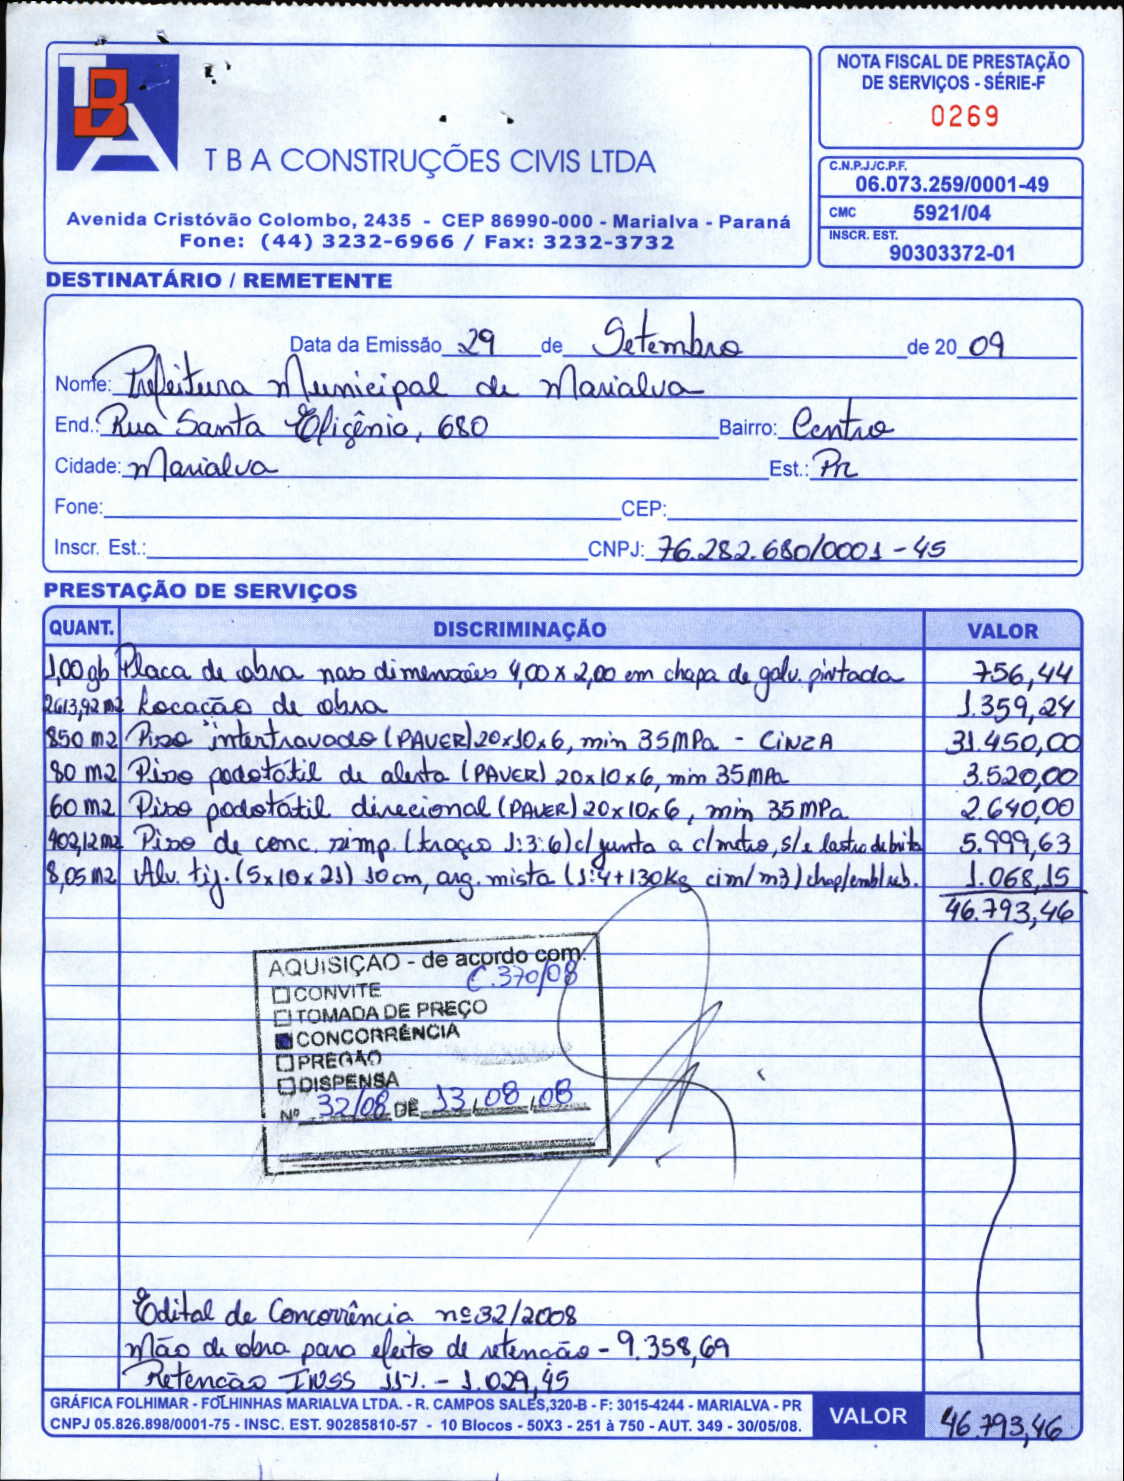 TBA
T B A CONSTRUÇÕES CIVIS LTDA
Avenida Cristóvão Colombo, 2435 - CEP 86990-000 - Marialva - Paraná
Fone: (44) 3232-6966 / Fax: 3232-3732
NOTA FISCAL DE PRESTAÇÃO
DE SERVIÇOS - SÉRIE-F
0269
C.N.P.J./C.P.F.
06.073.259/0001-49
CMC 5921/04
INSCR. EST.
90303372-01
DESTINATÁRIO / REMETENTE
Data da Emissão 29 de Setembro de 20 09
Nome: Prefeitura Municipal de Marialva
End.: Rua Santa Efigênia, 680 Bairro: Centro
Cidade: Marialva Est.: Pr
Fone: CEP:
Inscr. Est.: CNPJ: 76.282.680/0001-45
PRESTAÇÃO DE SERVIÇOS
QUANT. DISCRIMINAÇÃO VALOR
1,00 gb Placa de obra nas dimensões 4,00 x 2,00 em chapa de galv. pintada 756,44
2613,92 m2 Locação de obra 1.359,24
850 m2 Piso intertravado (PAVER) 20x10x6, min 35MPa - CINZA 31.450,00
80 m2 Piso podotátil de alerta (PAVER) 20x10x6, min 35MPa 3.520,00
60 m2 Piso podotátil direcional (PAVER) 20x10x6, min 35MPa 2.640,00
402,12 m2 Piso de conc. simp. (traço 1:3:6) c/ junta a c/metro, s/e lastro de brita 5.999,63
8,05 m2 Alv. tij. (5x10x21) 10cm, arg. mista (1:4+130kg cim/m3) chap/emb/reb. 1.068,15
46.793,46
AQUISIÇÃO - de acordo com:
C.370/08
CONVITE
TOMADA DE PREÇO
CONCORRÊNCIA
PREGÃO
DISPENSA
Nº 32/08 DE 13/08/08
Edital de Concorrência nº 32/2008
Mão de obra para efeito de retenção - 9.358,69
Retenção INSS 11%. - 1.029,45
GRÁFICA FOLHIMAR - FOLHINHAS MARIALVA LTDA. - R. CAMPOS SALES,320-B - F: 3015-4244 - MARIALVA - PR
CNPJ 05.826.898/0001-75 - INSC. EST. 90285810-57 - 10 Blocos - 50X3 - 251 à 750 - AUT. 349 - 30/05/08.
VALOR 46.793,46